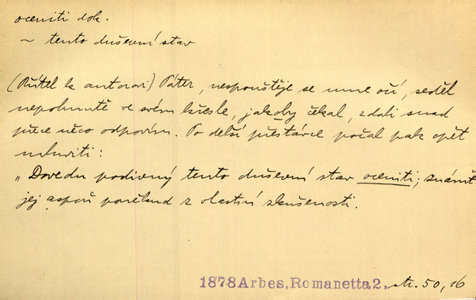 oceniti dok.
~ tento duševní stav
(Přítel k autorovi) Páter, nespouštěje se mne očí, seděl
nepohnutě ve svém křesle, jakoby čekal, zdali snad
přece něco odpovím. Po delší přestávce počal pak opět
mluviti:
„Dovedu podivený tento duševní stav oceniti; známť
jej aspoň poněkud z vlastní zkušenosti.
1878 Arbes, Romanetta 2, str. 50, 16